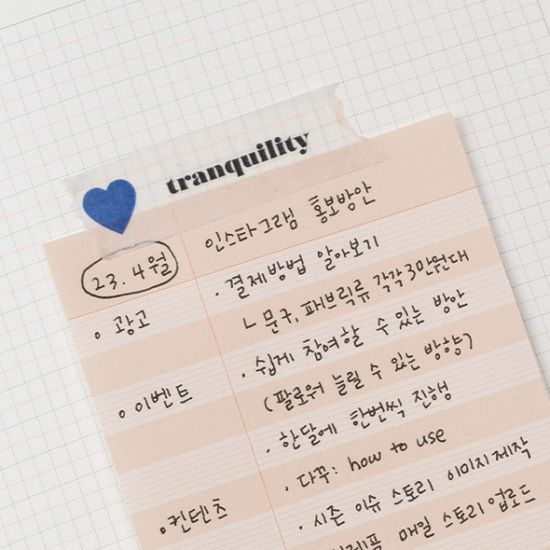 tranquility
인스타그램 홍보방안
23. 4월
· 결제방법 알아보기
∘ 광고
ㄴ 문구, 패브릭류 각각 3만원대
· 쉽게 참여할 수 있는 방안
∘ 이벤트
(팔로워 늘릴 수 있는 방향)
· 한달에 한번씩 진행
· 다꾸: how to use
∘ 컨텐츠
· 시즌 이슈 스토리 이미지 제작
매일 스토리 업로드